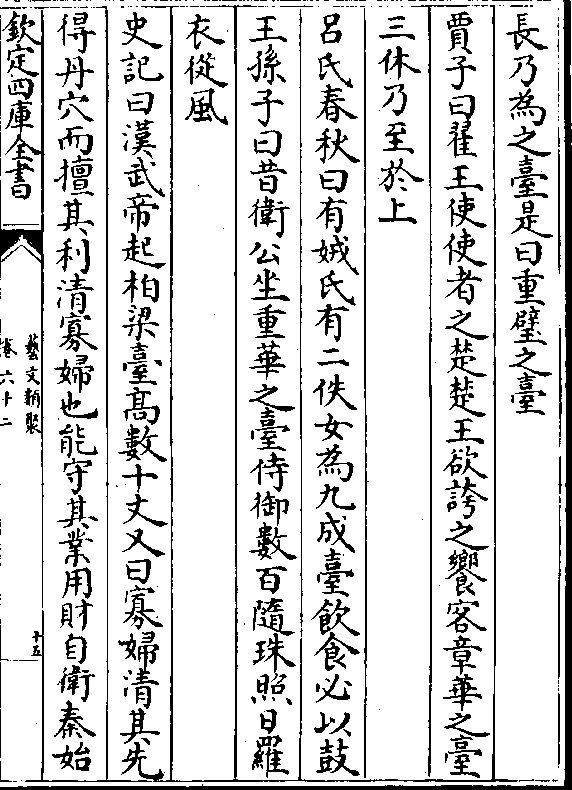 長乃為之臺是曰重璧之臺
賈子曰翟王使使者之楚楚王欲誇之饗客章華之臺
三休乃至於上
呂氏春秋曰有娀氏有二佚女為九成臺飲食必以鼓
王孫子曰昔衛公坐重華之臺侍御數百隨珠照日羅
衣從風
史記曰漢武帝起柏梁臺髙數十丈又曰寡婦清其先
得丹穴而擅其利清寡婦也能守其業用財自衛秦始
欽定四庫全書
藝文類聚
卷六十二
十五